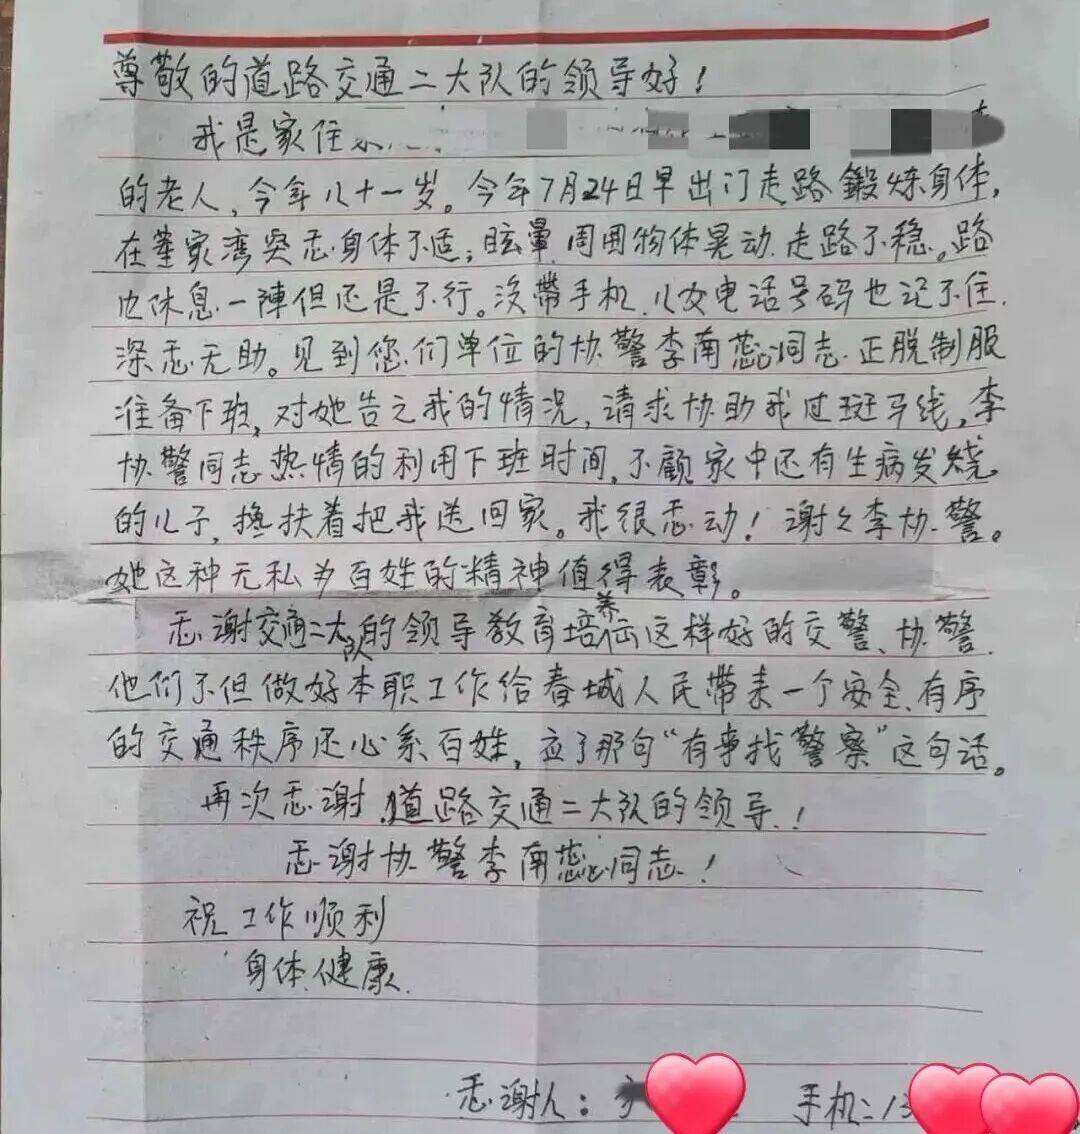 尊敬的道路交通二大队的领导好！
我是家住
的老人，今年八十一岁。今年7月24日早出门走路鍛炼身体，
在董家湾突感身体不适；眩暈.周围物体晃动.走路不稳。路
边休息一陣但还是不行。没带手机.儿女电话号码也记不住.
深感无助。见到您们单位的协警李南蕊同志.正脱制服
准备下班，对她告之我的情况，请求协助我过斑马线，李
协警同志热情的利用下班时间，不顧家中还有生病发烧
的儿子，搀扶着把我送回家。我很感动！谢々李协警。
她这种无私为百姓的精神值得表彰。
感谢交通二大队的领导教育培养出这样好的交警、协警.
他们不但做好本职工作给春城人民带来一个安全、有序
的交通秩序还心系百姓，应了那句“有事找警察”这句话。
再次感谢.道路交通二大队的领导.！
感谢协警李南蕊同志！
祝工作顺利
身体健康.
感谢人：
手机：13